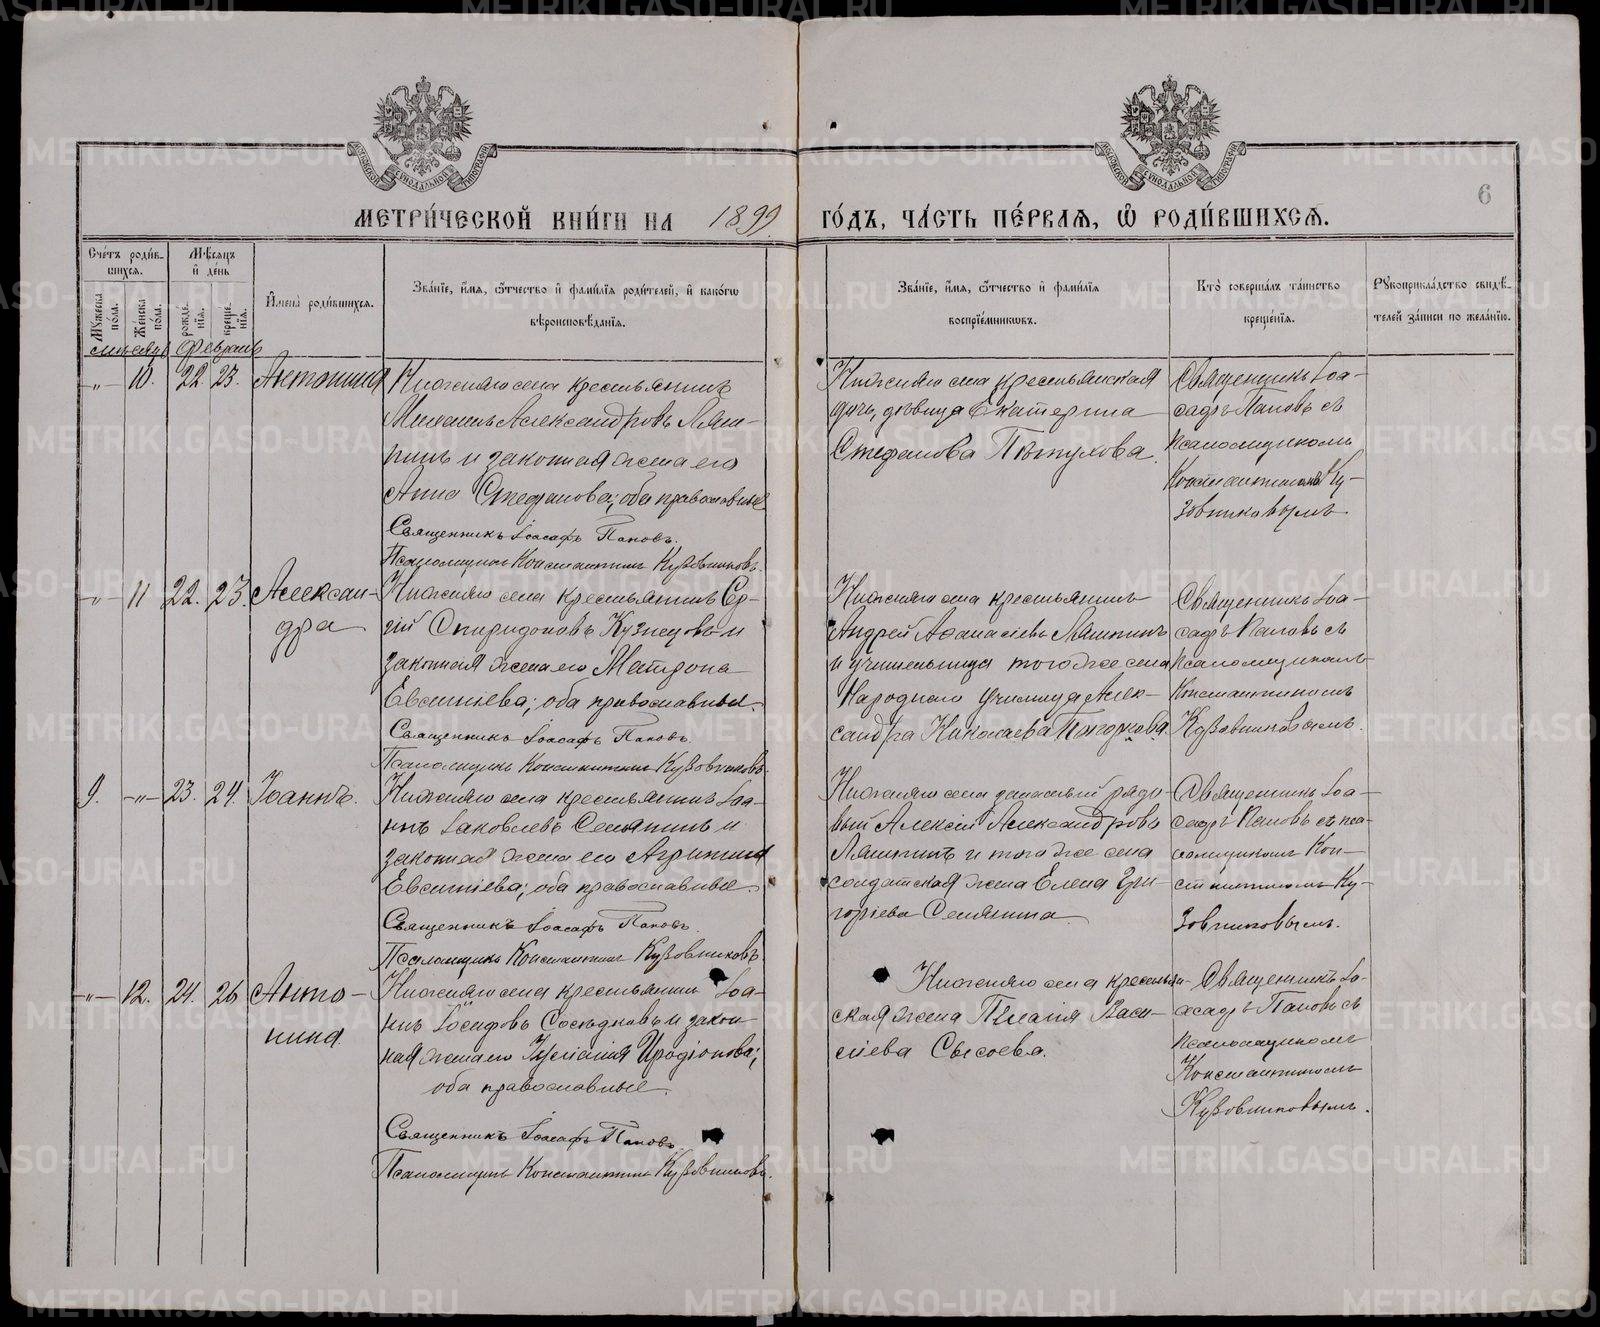 МЕТРИ́ЧЕСКОЙ КНИ́ГИ НА 1899 ГО́ДЪ, ЧА́СТЬ ПЕ́РВАЯ, Ѡ РОДИ́ВШИХСЯ.
6
Сче́тъ роди́в-
шихся.
Мѣ́сяцъ
и҆ де́нь
Мꙋжеска по́ла.
Же́нска по́ла.
рожде́нїя.
креще́нїя.
И҆мена̀ роди́вшихся.
Зва́нїе, и҆́мя, ѻ҆́тчество и҆ фами́лїя роди́телей, и҆ како́гѡ
вѣроисповѣ́данїя.
Зва́нїе, и҆́мя, ѻ҆́тчество и҆ фами́лїя
воспрїе́мниковъ.
Кто̀ соверша́лъ та́инство
креще́нїя.
Рꙋкоприкла́дство свидѣ́-
телей за́писи по жела́нїю.
мѣсяцъ Февраль
-„- 10. 22. 23. Антонина
крестьянинъ
Михаилъ Александровъ Ляп-
и законная жена его
Анна Стефанова; оба православные
Священникъ Іоасафъ Поповъ.
Псаломщикъ Константинъ Кузовниковъ.
села крестьянская
дочь, девица Екатерина
Стефанова
Священникъ Іоа-
сафъ Поповъ съ
псаломщикомъ
Константиномъ Ку-
зовниковымъ.
-„- 11 22. 23. Алексан-
дра
села крестьянинъ Сер-
гій Спиридоновъ Кузнецовъ и
законная жена его Матрона
Евсигніева; оба православные.
Священникъ Іоасафъ Поповъ.
Псаломщикъ Константинъ Кузовниковъ.
села крестьянинъ
Андрей Аѳанасіевъ
и учительница того же села
Народнаго училища Алек-
сандра Николаева
Священникъ Іоа-
сафъ Поповъ съ
псаломщикомъ
Константиномъ
Кузовниковымъ.
9. -„- 23. 24. Іоаннъ.
села крестьянинъ Іоа-
ннъ Іаковлевъ Семянинъ и
законная жена его Агрипина
Евсигніева; оба православные.
Священникъ Іоасафъ Поповъ.
Псаломщикъ Константинъ Кузовниковъ.
села запасный рядо-
вый Алексій Александровъ
и того же села
солдатская жена Елена Гри-
горіева Семянина
Священникъ Іоа-
сафъ Поповъ съ пса-
ломщикомъ Кон-
стантиномъ Ку-
зовниковымъ.
-„- 12. 24. 26 Анто-
нина
села крестьянинъ Іоа-
ннъ Іосифовъ и закон-
ная жена его Иродіонова;
оба православные.
Священникъ Іоасафъ Поповъ
Псаломщикъ Константинъ Кузовниковъ.
села крестьян-
ская жена Пелагія Васи-
ліева Сысоева.
Священникъ Іо-
асафъ Поповъ съ
псаломщикомъ
Константиномъ
Кузовниковымъ.
METRIKI.GASO-URAL.RU